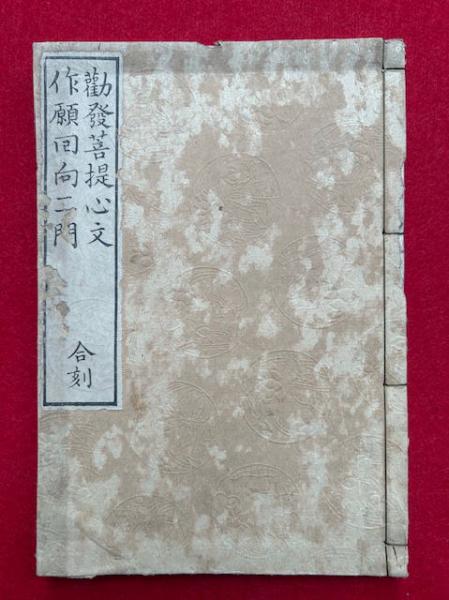 勸發菩提心文
作願回向二門
合刻